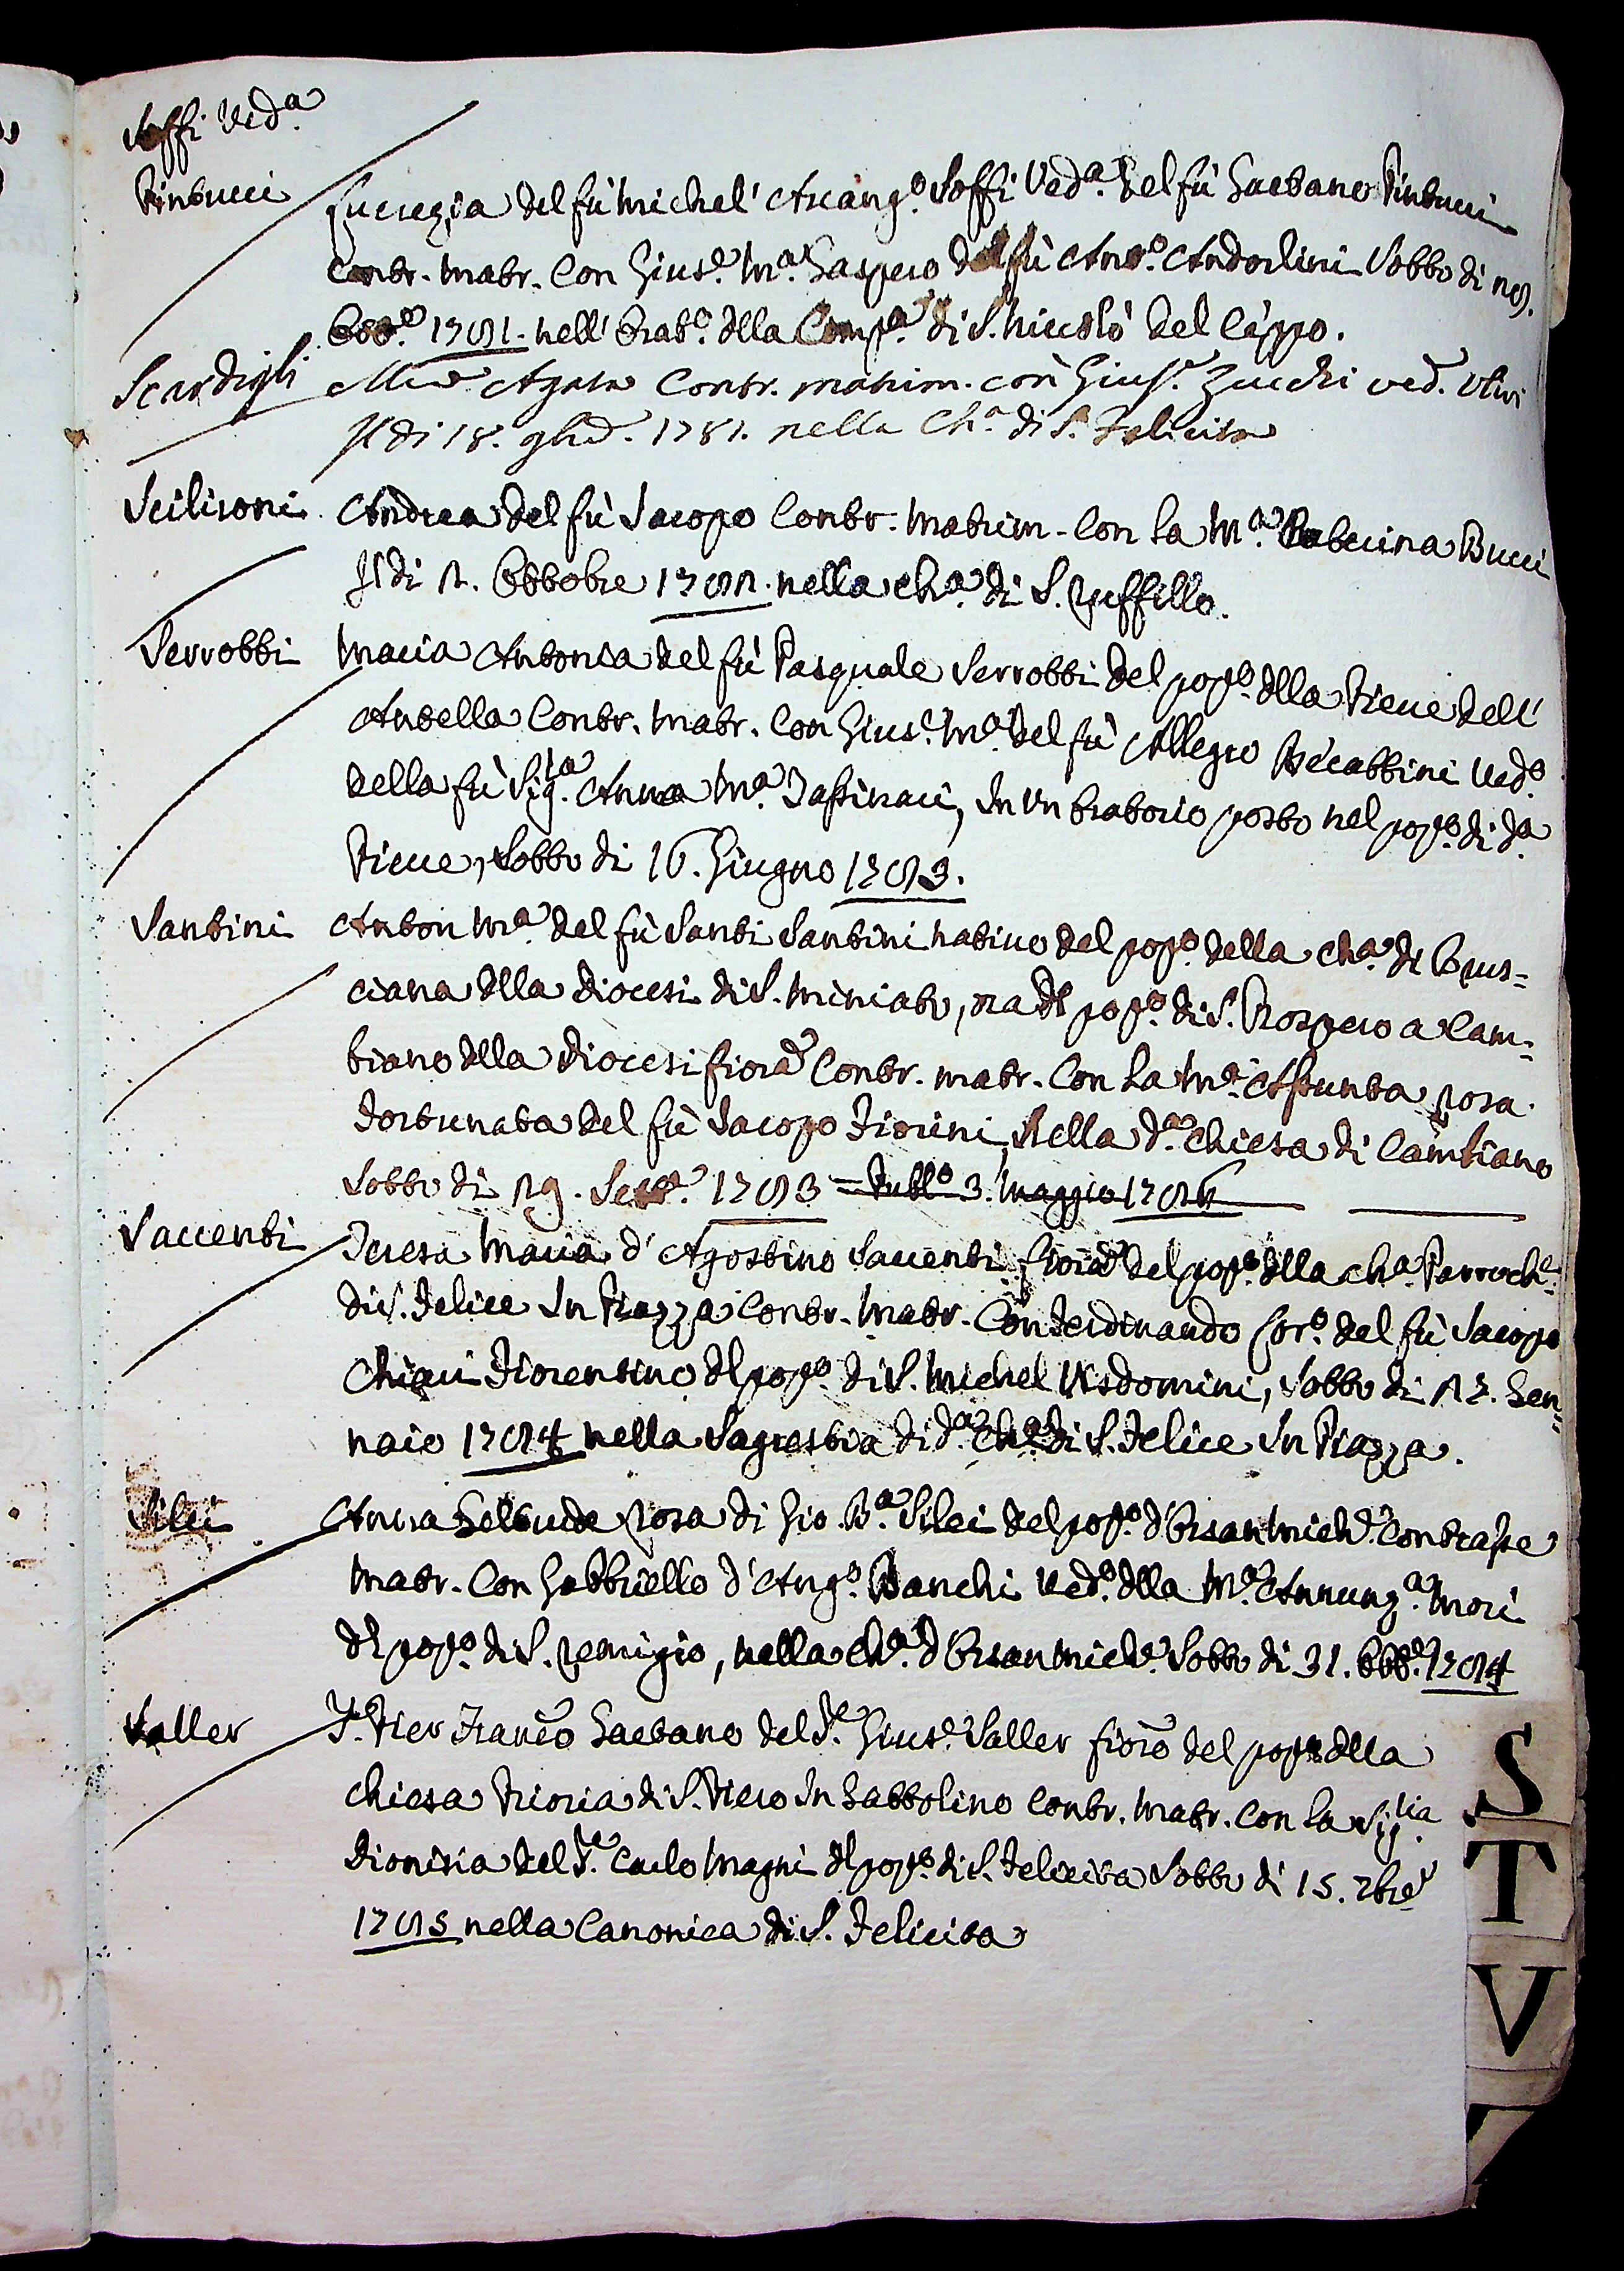 Soffi Ved.a
Pintucci
Lucrezia del fù Michel' Arcang.o Soffi Ved.a del fù Gaetano Pintucci
Contr. Matr. Con Gius.e M.a Gaspero del fù Ant.o Andorlini Sotto di 29.
Ott.e 1791. nell' Orat.o dlla Comp.a di S. Niccolò del Ceppo.
Scardigli
M.a Agata Contr. matrim. con Gius.e Zucchi ved. Ulivi
Il di 18. 9bre. 1781. nella Ch.a di S. Felicita
Scilironi
Andrea del fù Jacopo Contr. Matrim. Con La M.a Caterina Bucci
Il di 2. Ottobre 1792. nella Ch.a di S. Ruffillo.
Serrotti
Maria Antonia del fù Pasquale Serrotti del pop.o dlla Pieve dell'
Antella Contr. Matr. Con Gius.e M.a del fù Allegro Becattini Ved.o
della fù Sig.ra Anna M.a Tassinari, In un Oratorio posto nel pop.o di d.a
Pieve, Sotto di 16. Giugno 1793.
Santini
Anton M.a del fù Santi Santini nativo del pop.o della Ch.a di Brus=
ciana dlla Diocesi di S. Miniato, ora dl pop.o di S. Prospero a Cam=
biano dlla Diocesi fior.a Contr. matr. Con La M.a Assunta Rosa
Fortunata del fù Jacopo Fiorini, Nella d.a Chiesa di Cambiano
Sotto di 29. Sett.e 1793 = Pubb.o 3. Maggio 1796
Saccenti
Teresa Maria d' Agostino Saccenti fior.a del pop.o dlla Ch.a Parroch.e
di S. Felice In Piazza Contr. Matr. Con Ferdinando Lor.o del fù Jacopo
Chiari Fiorentino dl pop.o di S. Michel Visdomini, Sotto di 27. Gen=
naio 1794 nella Sagrestia di d.a Ch.a di S. Felice In Piazza.
Silei
Anna Geltrude Rosa di Gio. B.a Silei del pop.o d' Orsanmich.e Contrasse
Matr. Con Gabbriello d' Ang.o Bianchi Ved.o dlla M.a Annunz.a Mori
dl pop.o di S. Remigio, nella Ch.a d' Orsanmich.e Sotto di 31. Ott.e 1794
Saller
S.e Pier Franc.o Gaetano del S.e Gius.e Saller fior.o del pop.o dlla
Chiesa Prioria di S. Piero In Gattolino Contr. Matr. Con La Sig.ra
Dionisia del S.e Carlo Magni dl pop.o di S. Felicita Sotto di 15. 7bre
1795 nella Canonica di S. Felicita
S
T
V